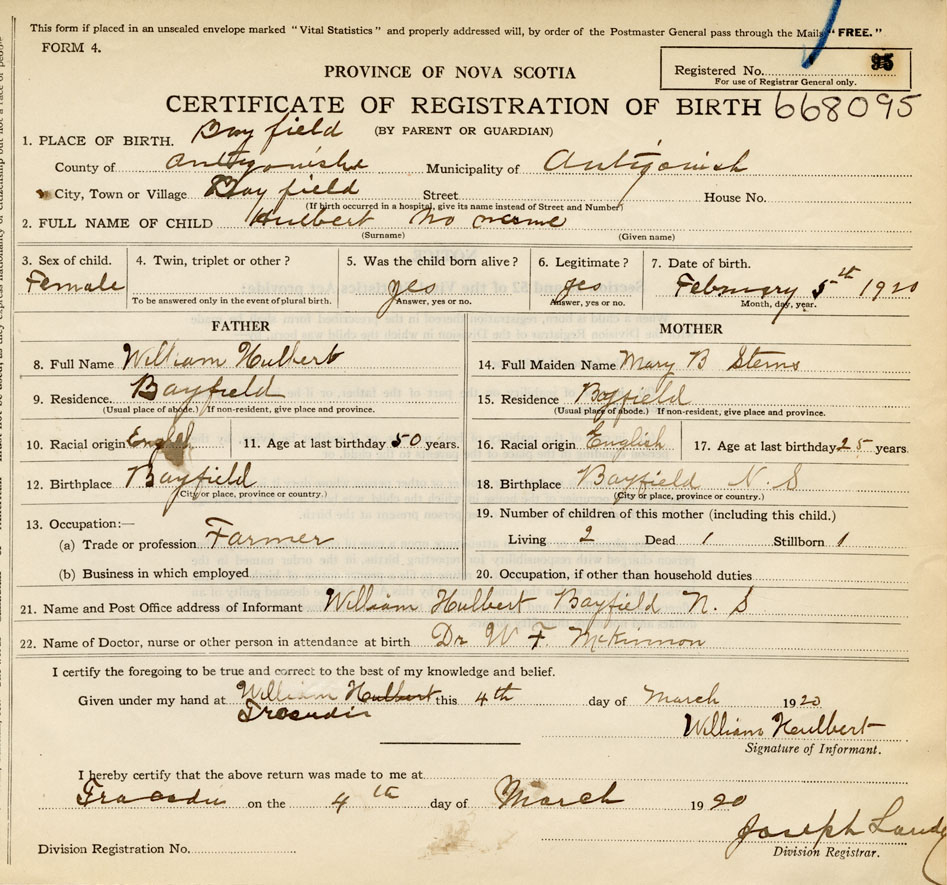 This form if placed in an unsealed envelope marked "Vital Statistics" and properly addressed will, by order of the Postmaster General pass through the Mails "FREE."
FORM 4.
PROVINCE OF NOVA SCOTIA
Registered No. 95
For use of Registrar General only.
CERTIFICATE OF REGISTRATION OF BIRTH 668095
(BY PARENT OR GUARDIAN)
1. PLACE OF BIRTH. Bayfield
County of Antigonish Municipality of Antigonish
City, Town or Village Bayfield Street House No.
(If birth occurred in a hospital, give its name instead of Street and Number)
2. FULL NAME OF CHILD Hulbert No name
(Surname) (Given name)
3. Sex of child. 4. Twin, triplet or other? 5. Was the child born alive? 6. Legitimate? 7. Date of birth.
Female yes yes February 5th 1920
To be answered only in the event of plural birth. Answer, yes or no. Answer, yes or no. Month, day, year.
FATHER MOTHER
8. Full Name William Hulbert 14. Full Maiden Name Mary B
9. Residence. Bayfield 15. Residence Bayfield
(Usual place of abode.) If non-resident, give place and province. (Usual place of abode.) If non-resident, give place and province.
10. Racial origin English 11. Age at last birthday 50 years. 16. Racial origin English 17. Age at last birthday 25 years.
12. Birthplace Bayfield 18. Birthplace Bayfield N. S
(City or place, province or country.) (City or place, province or country.)
13. Occupation:— 19. Number of children of this mother (including this child.)
(a) Trade or profession Farmer Living 2 Dead 1 Stillborn 1
(b) Business in which employed 20. Occupation, if other than household duties
21. Name and Post Office address of Informant William Hulbert Bayfield N. S
22. Name of Doctor, nurse or other person in attendance at birth Dr W F McKinnon
I certify the foregoing to be true and correct to the best of my knowledge and belief.
Given under my hand at William Hulbert this 4th day of March 1920
Tracadie
William Hulbert
Signature of Informant.
I hereby certify that the above return was made to me at
Tracadie on the 4th day of March 1920
Joseph
Division Registration No. Division Registrar.